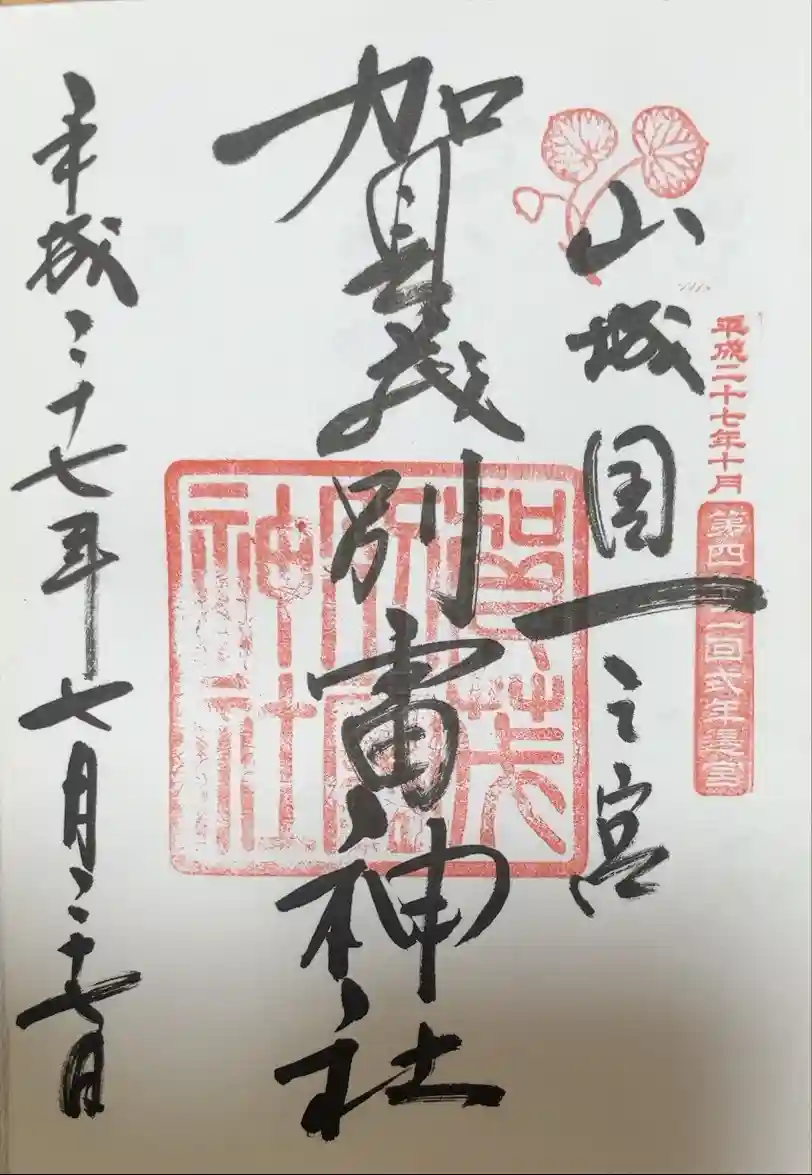 平成二十七年十月
第四十二回式年遷宮
山城国一之宮
賀茂別雷神社
賀茂別雷神社
平成二十七年七月二十七日